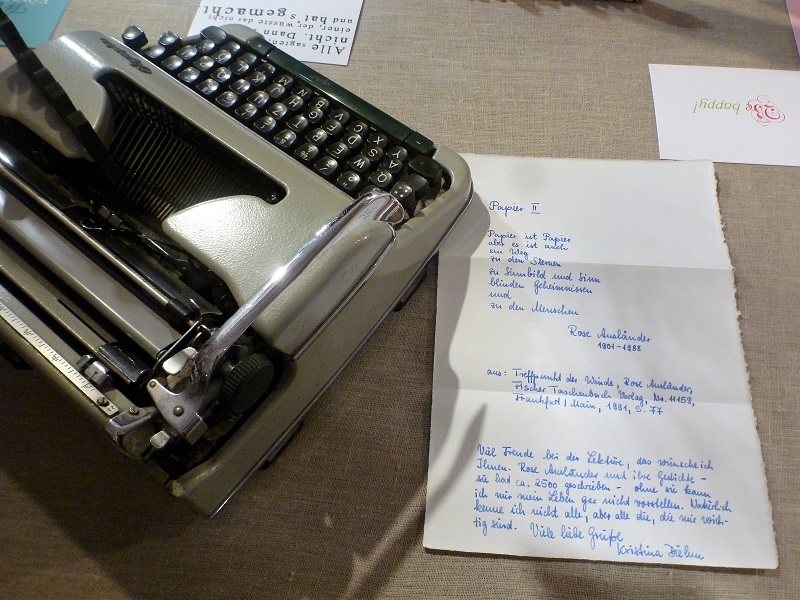 Alle sagten
nicht. Dann
einer, der, wusste das nicht
und hat's gemacht
Be happy!
Papier II
Papier ist Papier
aber es ist auch
ein Weg
zu den Sternen
zu Sinnbild und Sinn
blinden Geheimnissen
und
zu den Menschen
Rose Ausländer
1901-1988
aus: Treffpunkt der Winde, Rose Ausländer,
Fischer Taschenbuch Verlag, Nr. 11159,
Frankfurt/Main, 1991, S. 77
Viel Freude bei der Lektüre, das wünsche ich
Ihnen. Rose Ausländer und ihre Gedichte -
sie hat ca. 2500 geschrieben - ohne sie kann
ich mir mein Leben gar nicht vorstellen. Natürlich
kenne ich nicht alle, aber alle die, die mir wich-
tig sind. Viele liebe Grüße
Kristina